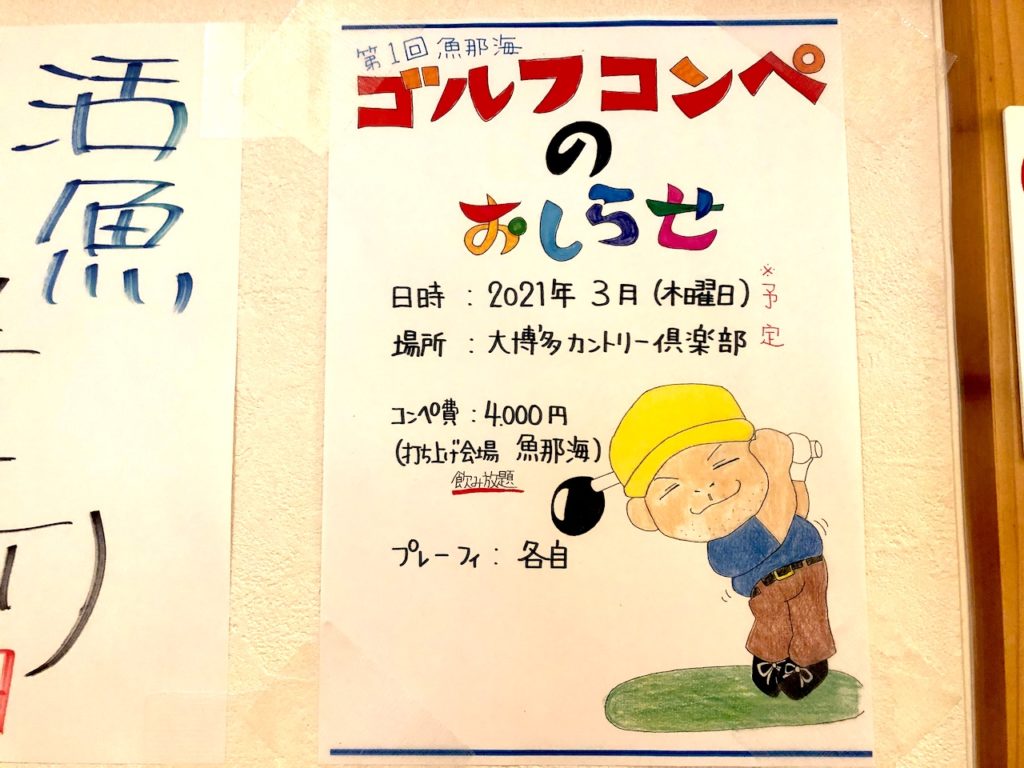 活魚
第1回 魚那海
ゴルフコンペ
の
おしらせ
日時 : 2021年 3月 (木曜日) ※予定
場所 : 大博多カントリー倶楽部
コンペ費 : 4.000円
(打ち上げ会場 魚那海)
飲み放題
プレーフィ : 各自